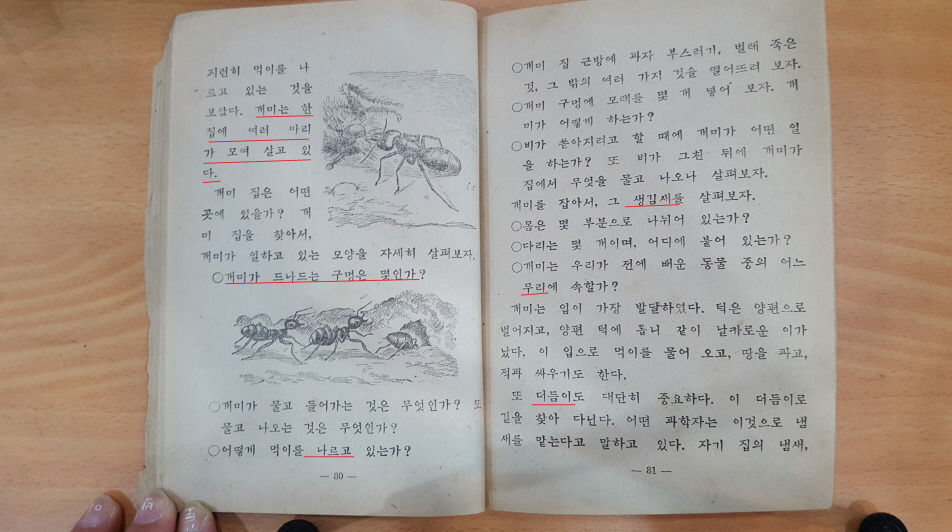 지런히 먹이를 나
르고 있는 것을
보았다. 개미는 한
집에 여러 마리
가 모여 살고 있
다.
개미 집은 어떤
곳에 있을가? 개
미 집을 찾아서,
개미가 일하고 있는 모양을 자세히 살펴보자.
○개미가 드나드는 구멍은 몇인가?
○개미가 물고 들어가는 것은 무엇인가? 또
물고 나오는 것은 무엇인가?
○어떻게 먹이를 나르고 있는가?
— 80 —
○개미 집 근방에 과자 부스러기, 벌레 죽은
것, 그 밖의 여러 가지 것을 떨어뜨려 보자.
○개미 구멍에 모래를 몇 개 넣어 보자. 개
미가 어떻게 하는가?
○비가 쏟아지려고 할 때에 개미가 어떤 일
을 하는가? 또 비가 그친 뒤에 개미가
집에서 무엇을 물고 나오나 살펴보자.
개미를 잡아서, 그 생김새를 살펴보자.
○몸은 몇 부분으로 나뉘어 있는가?
○다리는 몇 개이며, 어디에 붙어 있는가?
○개미는 우리가 전에 배운 동물 중의 어느
무리에 속할가?
개미는 입이 가장 발달하였다. 턱은 양편으로
벌어지고, 양편 턱에 톱니 같이 날카로운 이가
났다. 이 입으로 먹이를 물어 오고, 땅을 파고,
적과 싸우기도 한다.
또 더듬이도 대단히 중요하다. 이 더듬이로
길을 찾아 다닌다. 어떤 과학자는 이것으로 냄
새를 맡는다고 말하고 있다. 자기 집의 냄새,
— 81 —